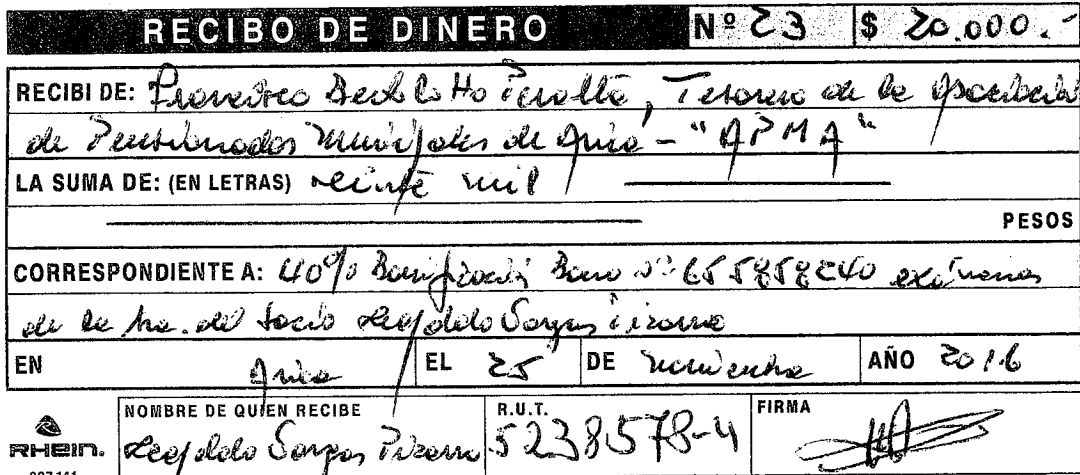 RECIBO DE DINERO Nº 23 $ 20.000.-
RECIBI DE: Francisco Peralta, Tesorero de la
de Pensionados Municipales de Arica - "APMA"
LA SUMA DE: (EN LETRAS) veinte mil
PESOS
CORRESPONDIENTE A: 40% Bonificación Bono Nº 655858240 exámenes
de la del socio Leopoldo Vargas Pizarro
EN Arica EL 25 DE noviembre AÑO 2016
NOMBRE DE QUIEN RECIBE R.U.T. FIRMA
RHEIN. Leopoldo Vargas Pizarro 5238578-4